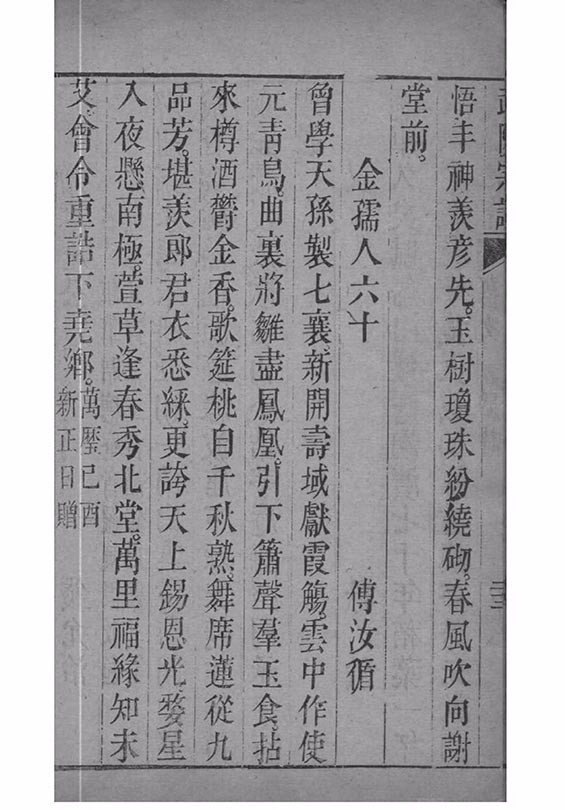 悟丰神羨彦先。玉樹瓊珠紛繞砌。春風吹向謝
堂前。
金孺人六十　傅汝循
曾學天孫製七襄。新開壽域獻霞觴。雲中作使
元青鳥。曲裏將雛盡鳳凰。引下簫聲羣玉食。拈
來樽酒鬱金香。歌筵桃自千秋熟。舞席蓮從九
品芳。堪羨郎君衣悉綵。更誇天上錫恩光。婺星
入夜懸南極。萱草逢春秀北堂。萬里福緣知未
艾。會令重誥下堯鄉。萬曆己酉
新正日贈